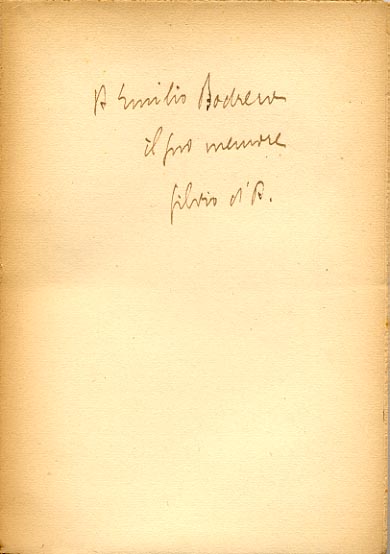 A Emilio Bodrero
il suo memore
Silvio d'A.